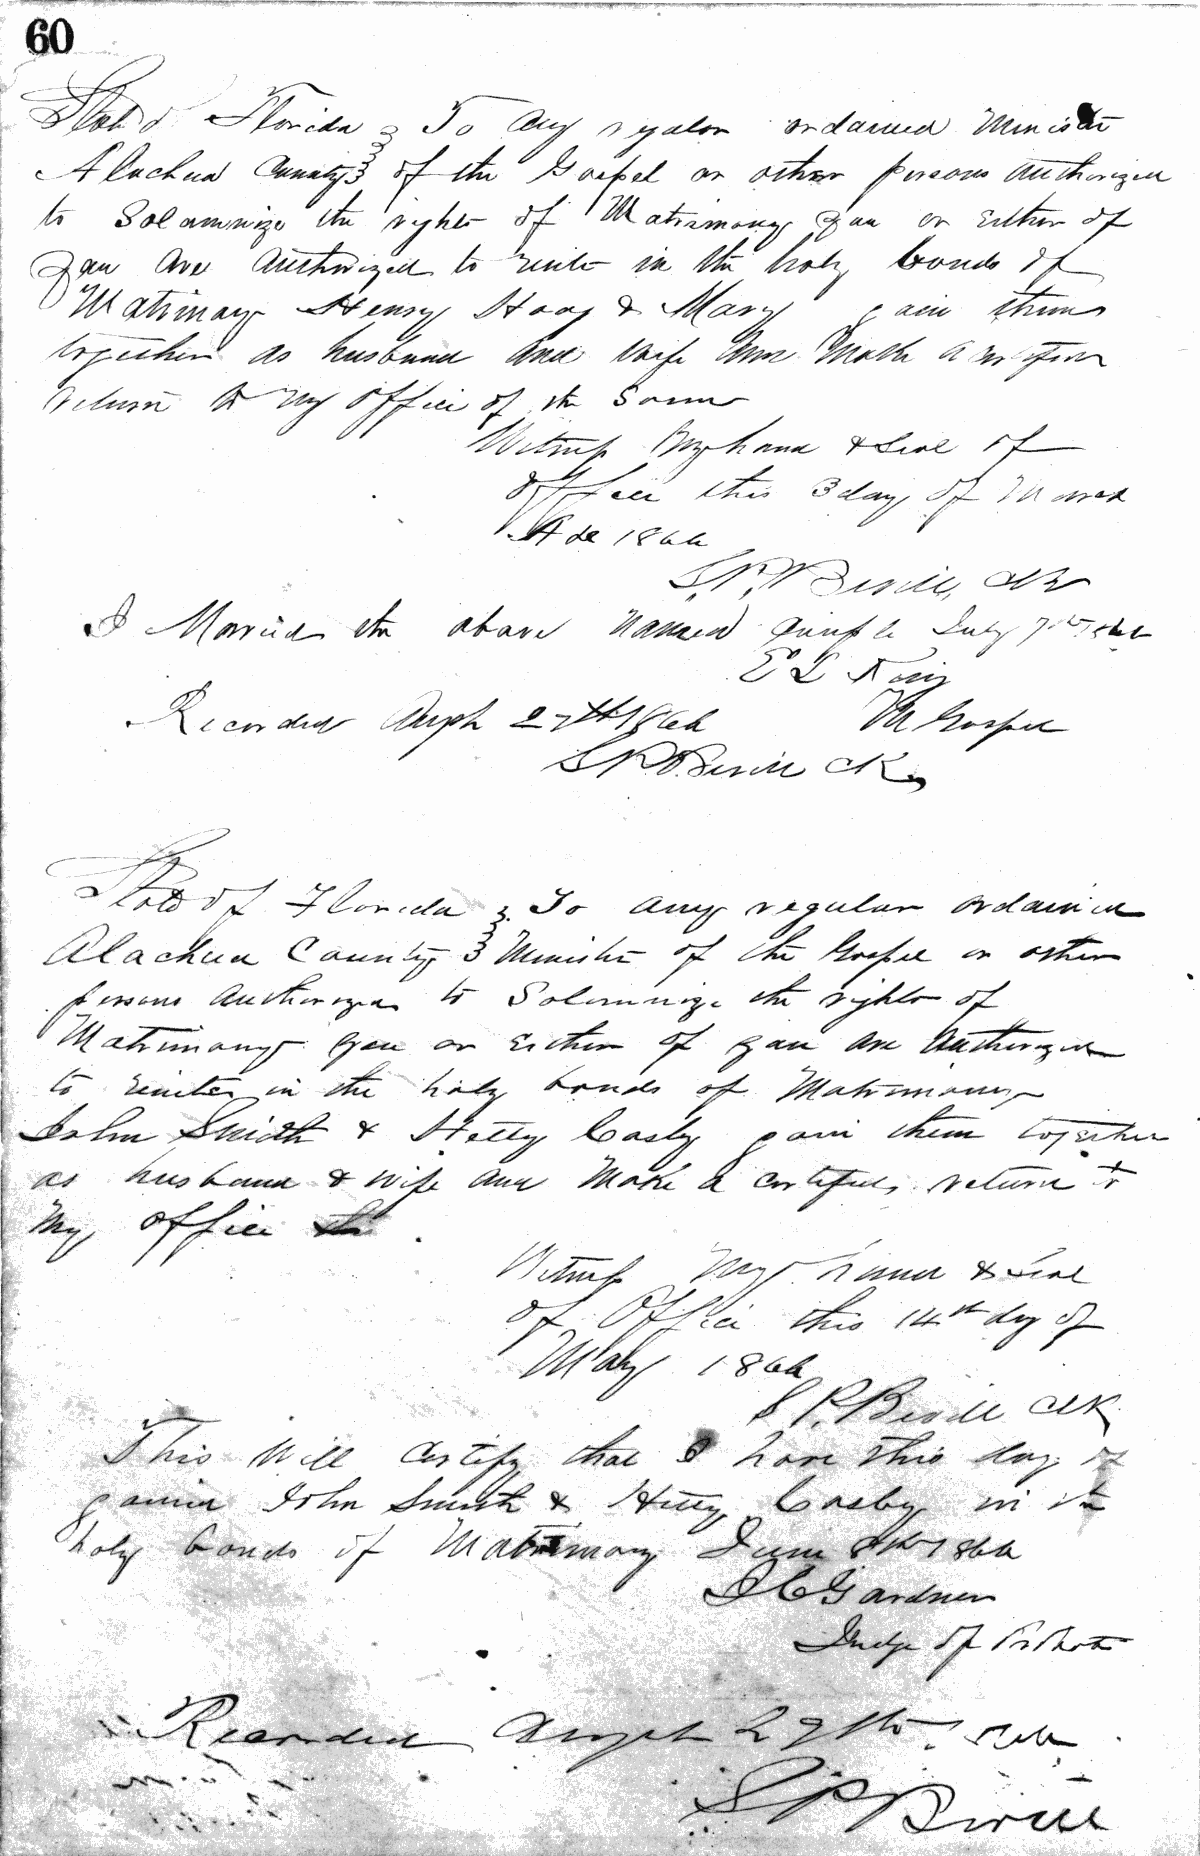 60
State of Florida } To any regular ordained Minister
Alachua County } of the Gospel or other persons authorized
to Solemnize the rights of Matrimony you or either of
you are authorized to unite in the holy bonds of
Matrimony Henry Hoag & Mary join them
together as husband and wife and make a
return to my office of the same
Witness my hand & Seal of
office this 3 day of March
AD 1866
S.P. Bevill, Clk
I Married the above named couple July 7th 1866
E L King
M Gospel
Recorded Augst 27th 1866
S P Bevill Clk
State of Florida } To any regular ordained
Alachua County } Minister of the Gospel or other
persons authorized to Solemnize the rights of
Matrimony you or either of you are authorized
to unite in the holy bonds of Matrimony
John Smith & Hetty Casby join them together
as husband & wife and make a certified return to
my office
Witness my hand & Seal
of Office this 14th day of
May 1866
S P. Bevill Clk
This Will certify that I have this day
joined John Smith & Hetty Casby in the
holy bonds of Matrimony June 8th 1866
J C Gardner
Judge of Probate
Recorded Augst 27th 1866
S P Bevill